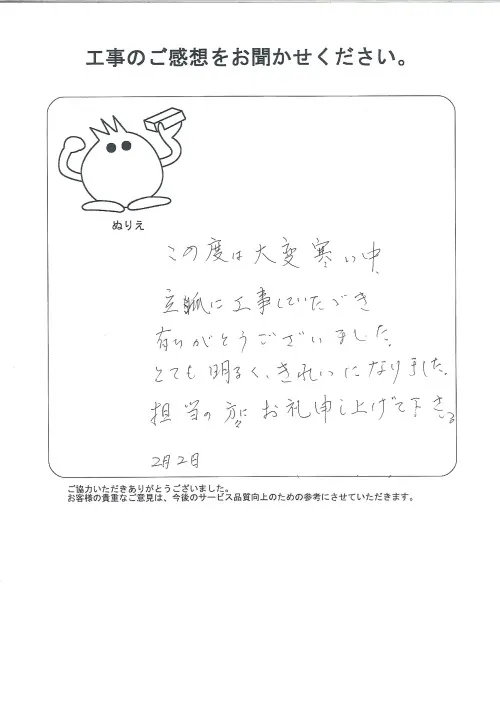 工事のご感想をお聞かせください。
ぬりえ
この度は大変寒い中、
立派に工事していただき
有りがとうございました。
とても明るく、きれいになりました。
担当の方にお礼申し上げて下さる
2月2日
ご協力いただきありがとうございました。
お客様の貴重なご意見は、今後のサービス品質向上のための参考にさせていただきます。